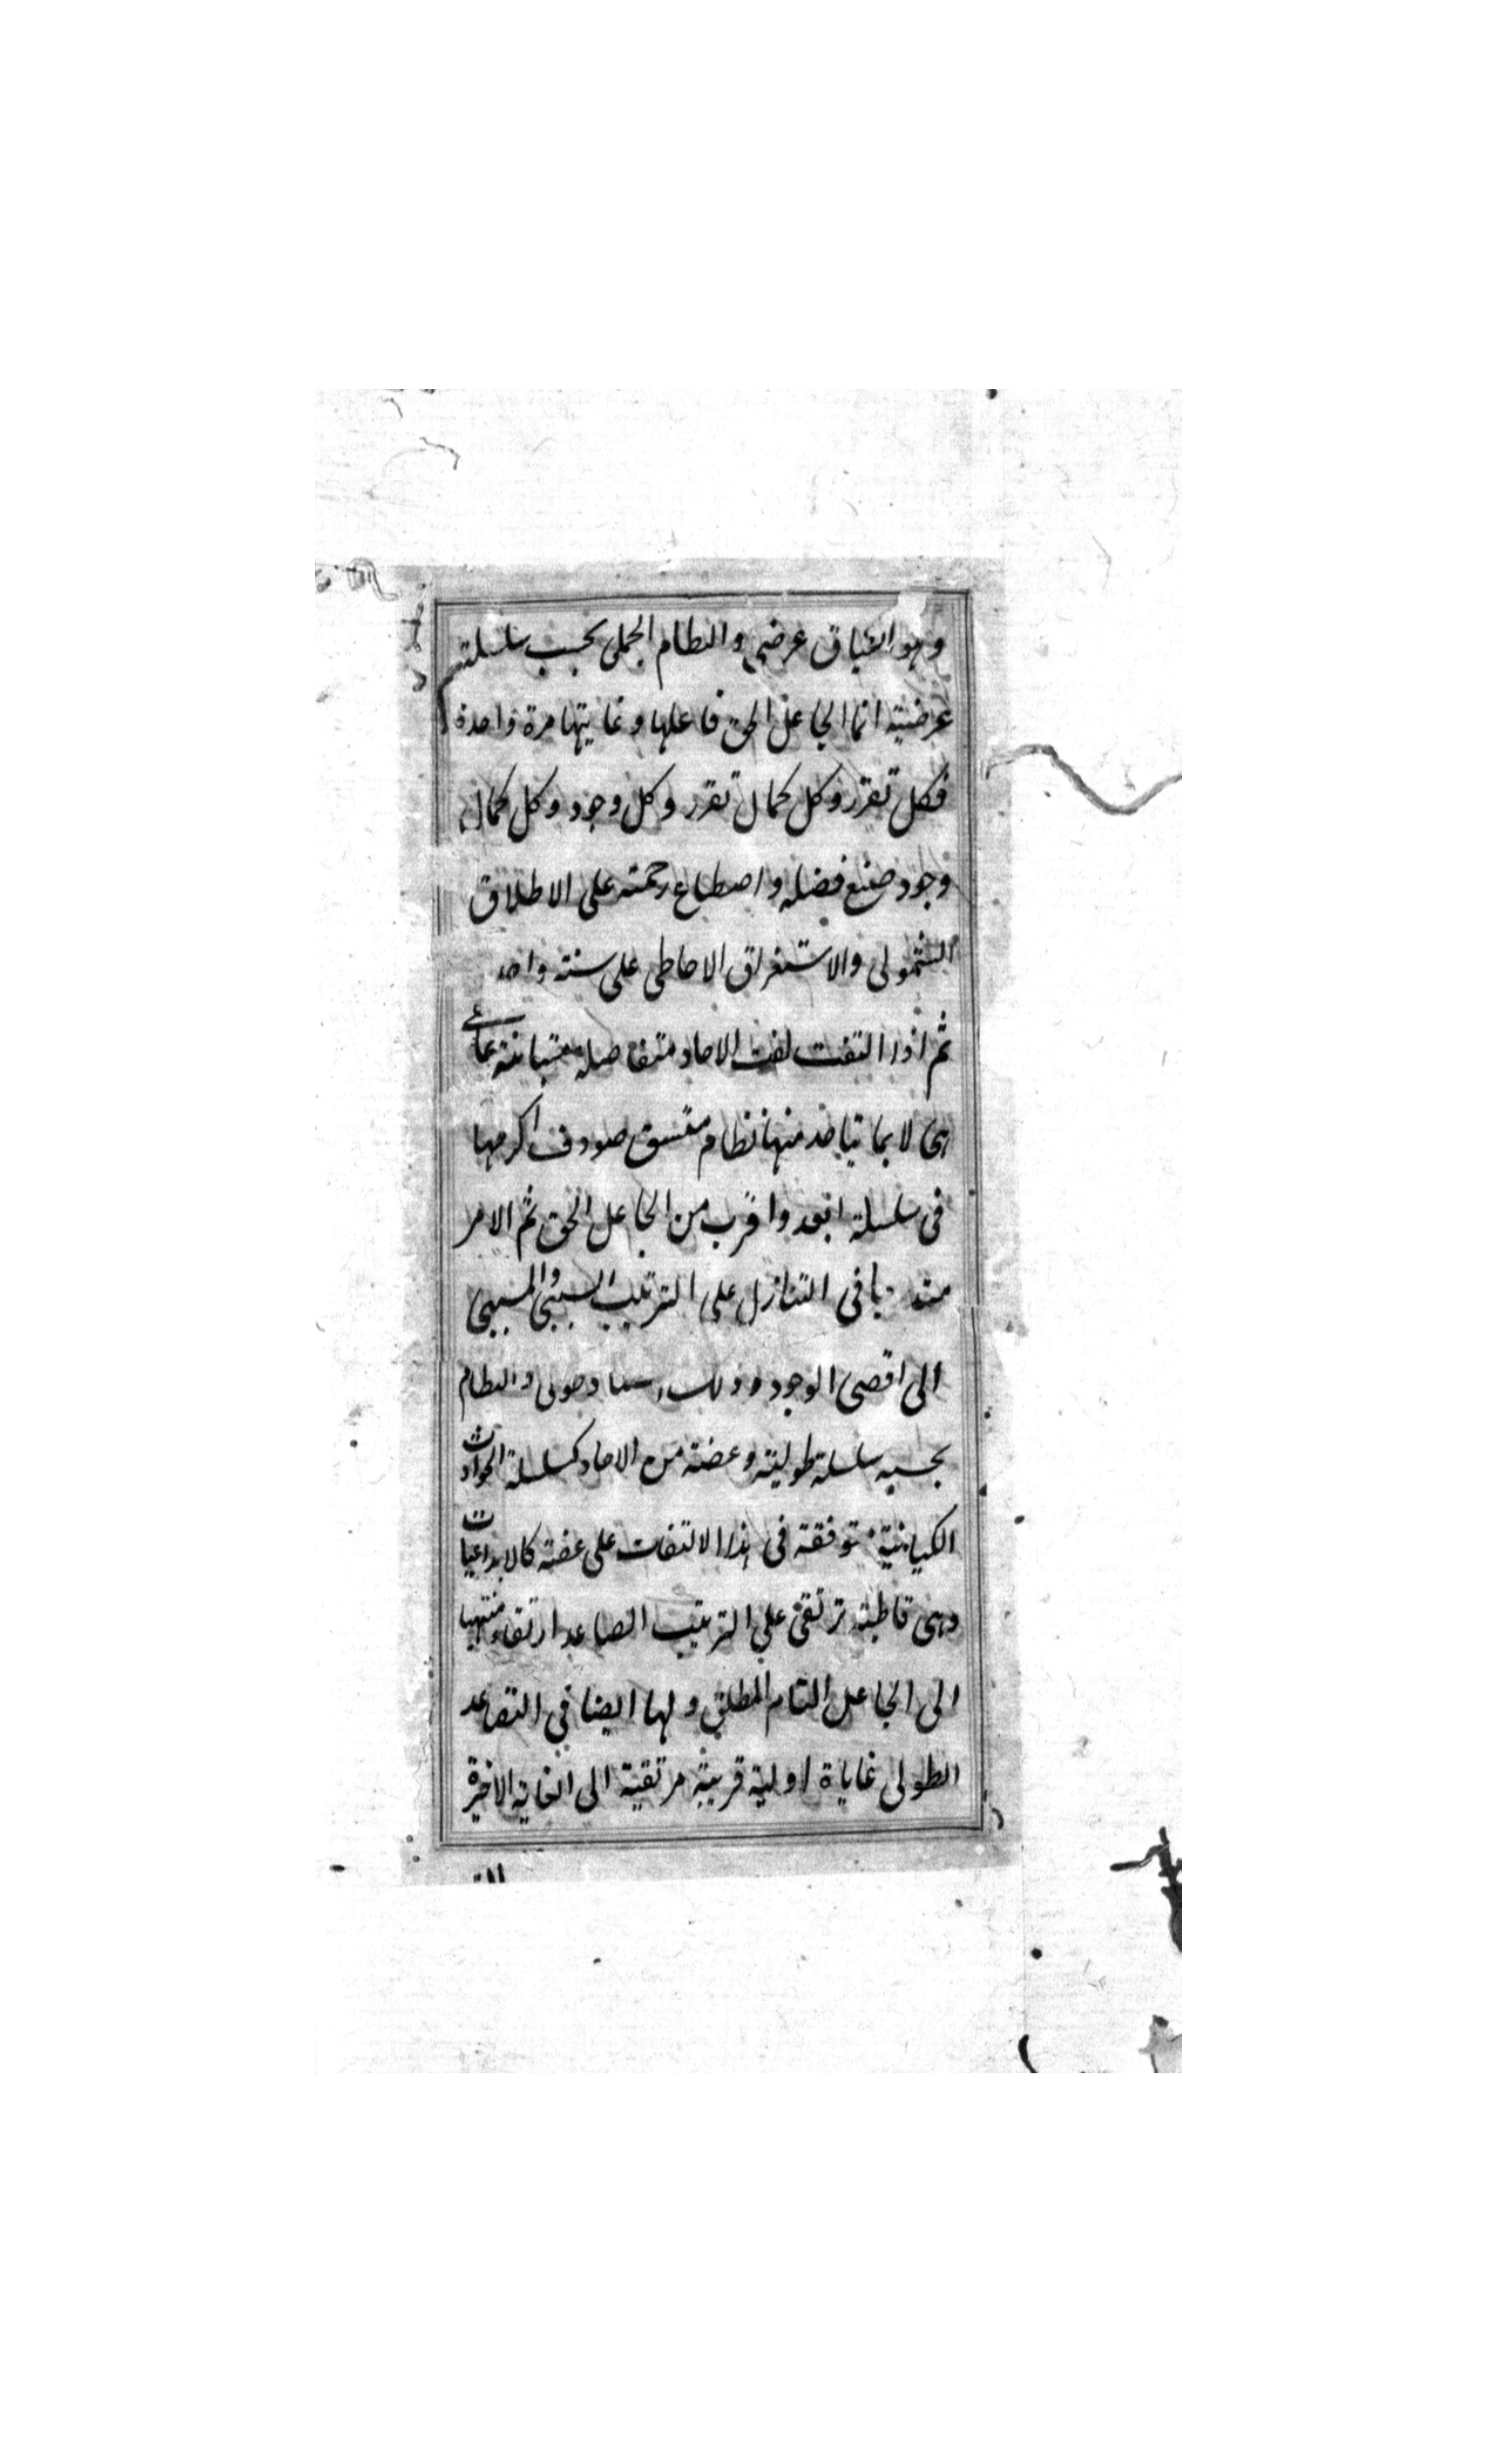 وهو اتساق عرضي والنظام الجملى بحسب سلسلتيهم
عرضية انما الجاعل الحق فاعلها وغايتها مرة واحدة
فكل تقرر وكل كمال تقرر وكل وجود وكل كمال
وجود صنع فضله واصطناع رحمته على الاطلاق
الشمولى والاستغراق الاحاطى على سنته واحد
ثم اذا التفت لفت الاحاد متفاصلة متباينة على
هى لا بما يتاحد منها نظام متسق صودف اكرمها
فى سلسلة ابعد واقرب من الجاعل الحق ثم الامر
متد با فى التنازل على الترتيب السببى والمسببى
الى اقصى الوجود وذلك طولى والنظام
بحسبه سلسلة طولية وعضة من الاحاد كسلسلة الحوادث
الكيانية متوفقة فى هذا الالتفات على عضة كالابداعيات
وهى قاطبة ترتقى على الترتيب الصاعد ارتقاء منتهيا
الى الجاعل التام المطلق ولها ايضا فى التصاعد
الطولى غاياة اولية قريبة مرتقية الى الغاية الاخيرة